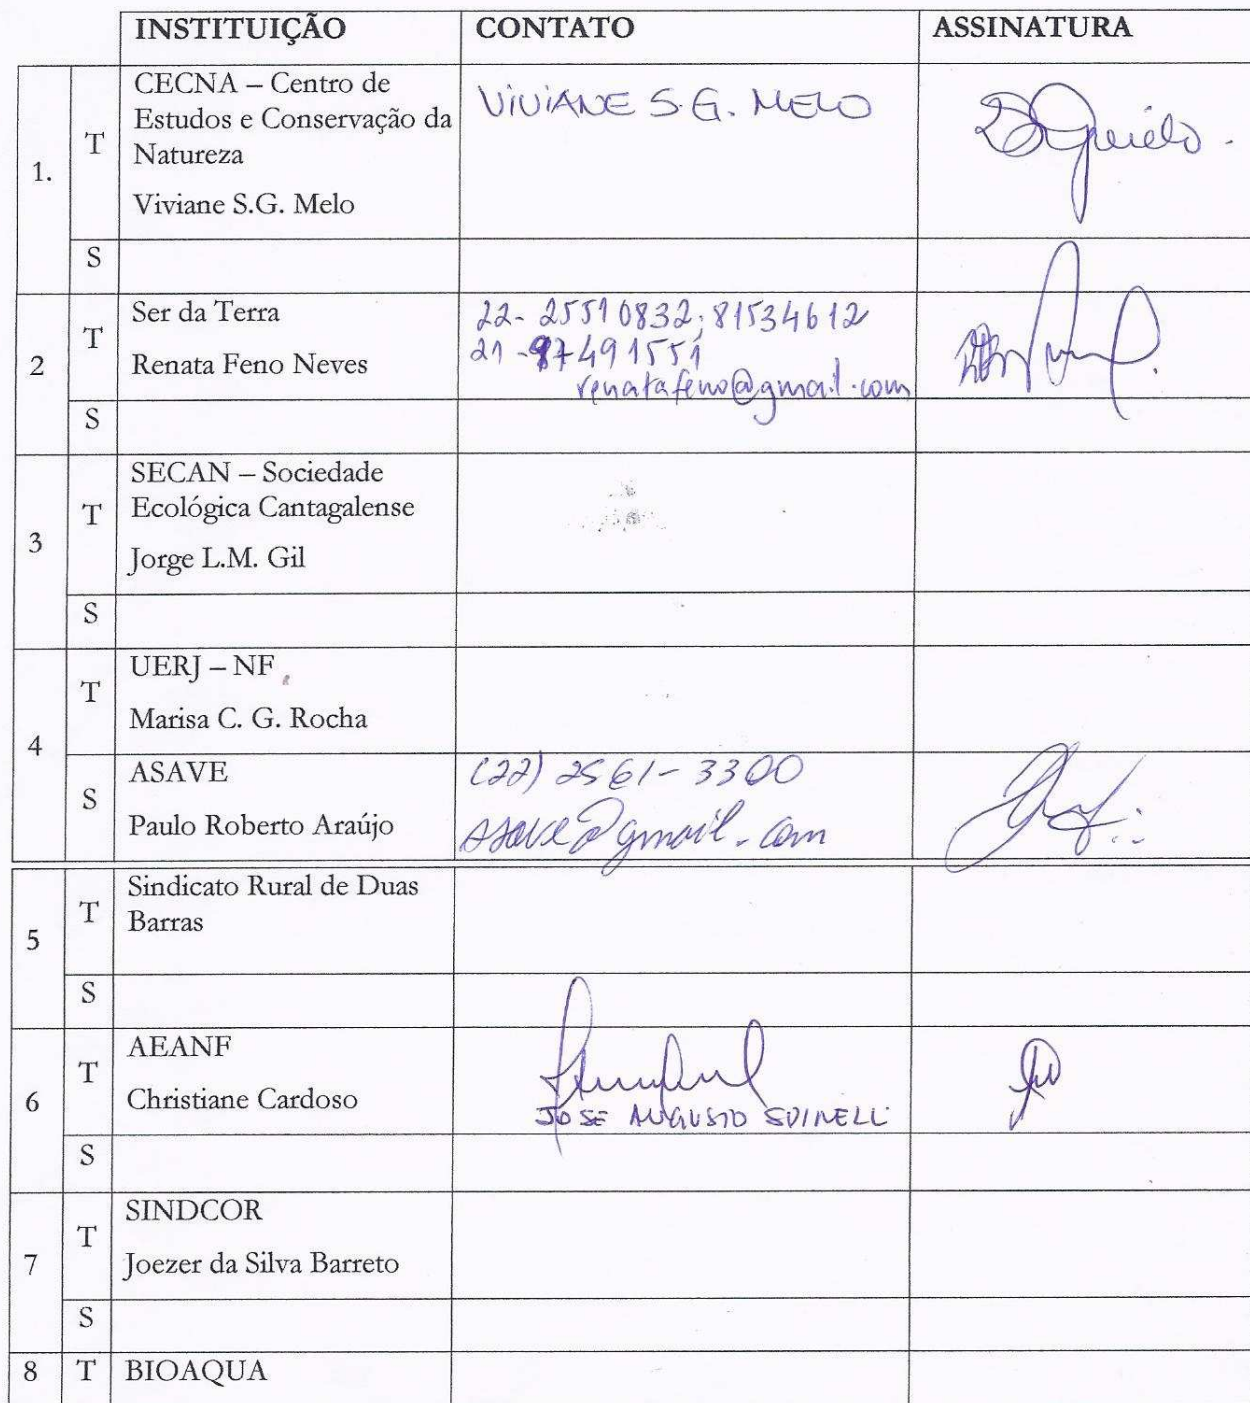 INSTITUIÇÃO CONTATO ASSINATURA
1. T CECNA – Centro de
Estudos e Conservação da
Natureza
Viviane S.G. Melo
VIVIANE S.G. MELO
S
2 T Ser da Terra
Renata Feno Neves
22-25510832; 81534612
21-97491551
renatafeno@gmail.com
S
3 T SECAN – Sociedade
Ecológica Cantagalense
Jorge L.M. Gil
S
4 T UERJ – NF
Marisa C. G. Rocha
S ASAVE
Paulo Roberto Araújo
(22) 2561-3300
asave@gmail.com
5 T Sindicato Rural de Duas
Barras
S
6 T AEANF
Christiane Cardoso
JOSE AUGUSTO SPINELLI
S
7 T SINDCOR
Joezer da Silva Barreto
S
8 T BIOAQUA